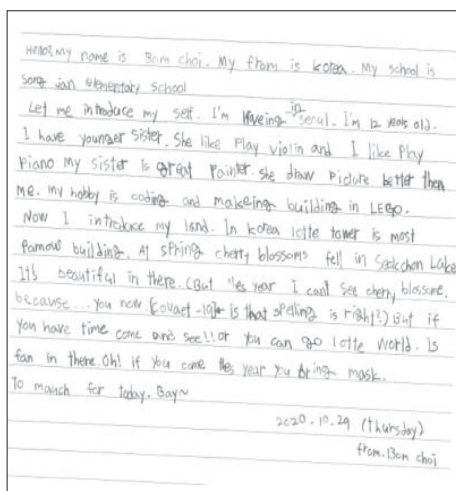 Hello? My name is Bom choi. My from is korea. My school is
song jan elementary school
Let me introduce my self. I'm liveing in seoul. I'm 12 years old.
I have younger sister. She like play violin and I like play
piano my sister is great painter. she draw picture better then
me. my hobby is coding and makeing building in LEGO.
Now I introduce my land. In korea lotte tower is most
famous building. At spring cherry blossoms fell in Seokchon Lake
It's beautiful in there. (But this year I can't see cherry blossome.
because... you now [covaet-19] is that spelling is right?) But if
you have time come and see!! or you can go lotte world. Is
fan in there. Oh! if you come this year you bring mask.
To mauch for today. Bay~
2020.10.29 (thursday)
from. Bom choi